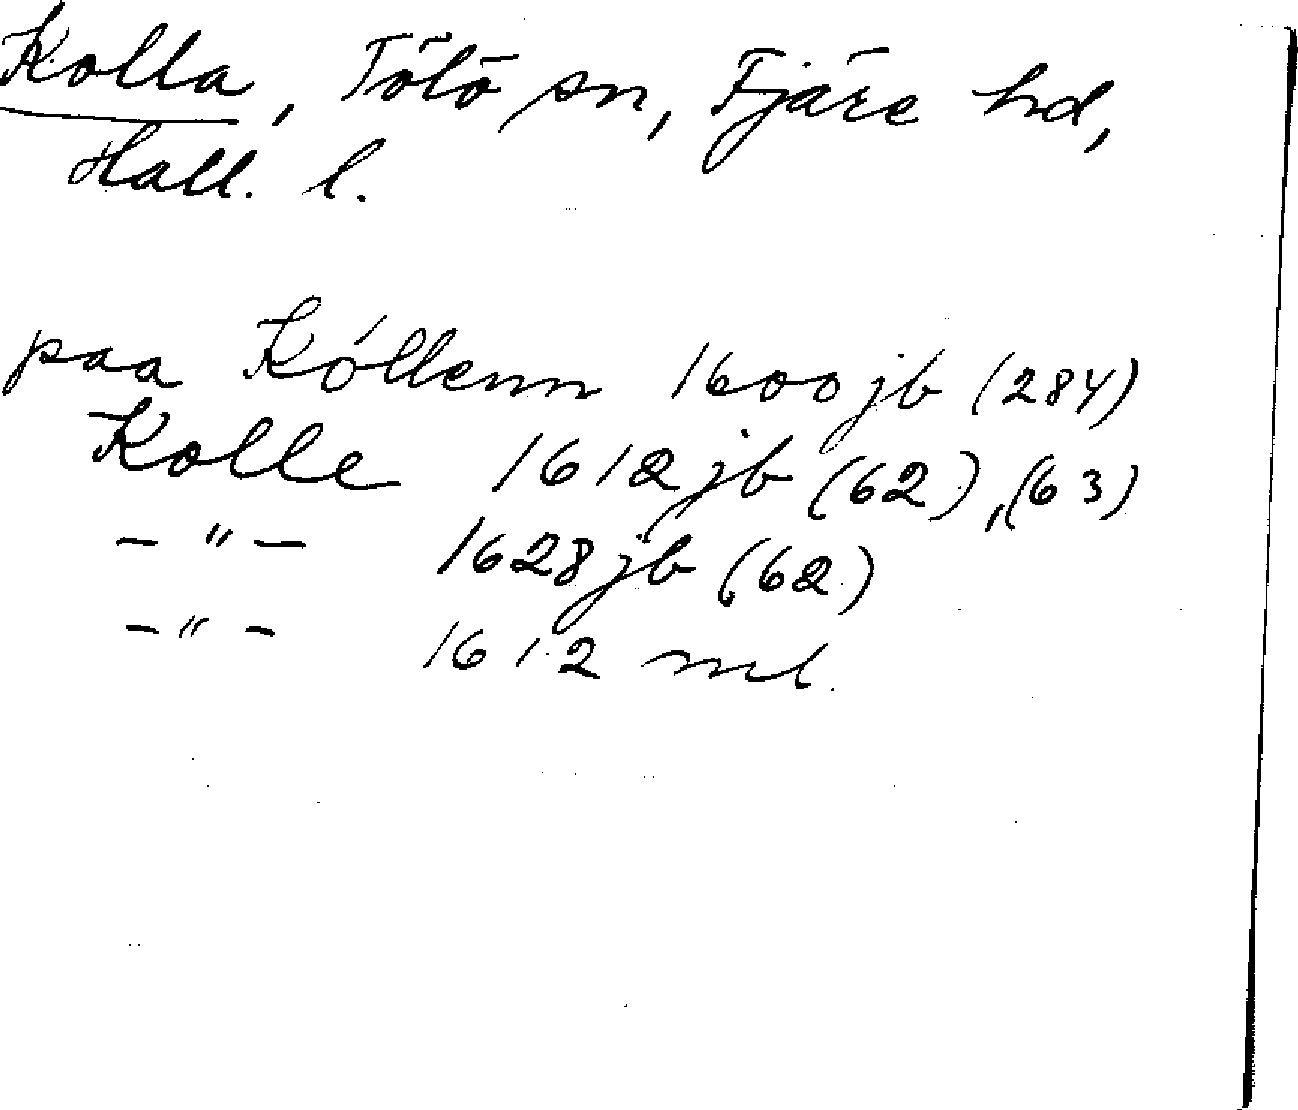 Kolla, Tölö sn, Fjäre hd,
Hall. l.
paa Kóllenn 1600 jb (284)
Kolle 1612 jb (62), (63)
- " - 1628 jb (62)
- " - 1612 ml.